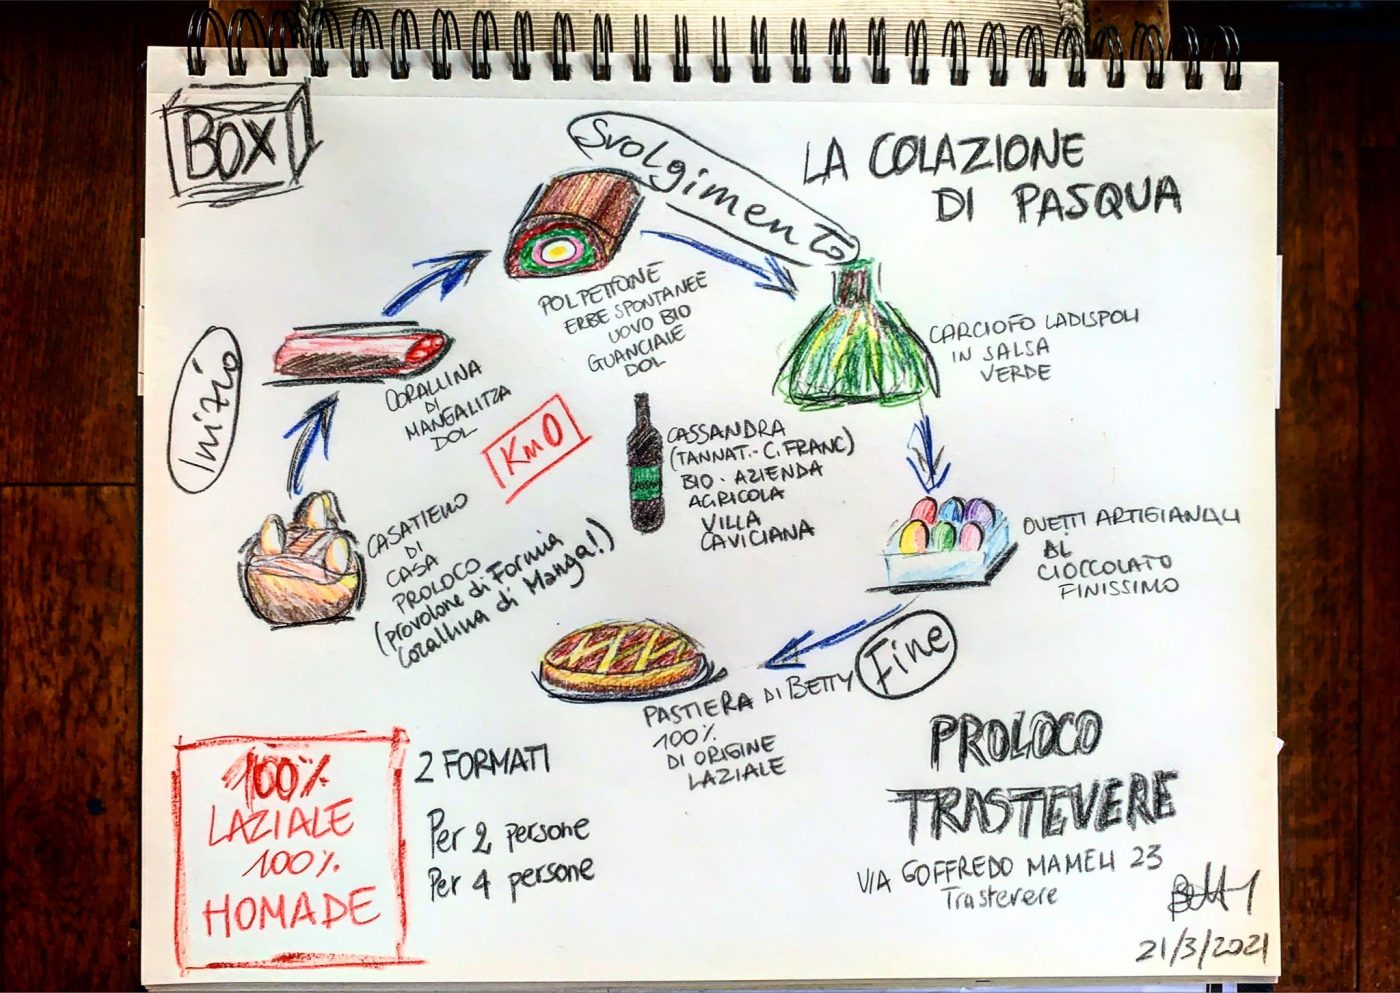 BOX
Svolgimento
LA COLAZIONE
DI PASQUA
Inizio
POLPETTONE
ERBE SPONTANEE
UOVO BIO
GUANCIALE
DOL
CARCIOFO LADISPOLI
IN SALSA
VERDE
CORALLINA
DI
MANGALITZA
DOL
Km0
CASSANDRA
(TANNAT.-C.FRANC)
BIO. AZIENDA
AGRICOLA
VILLA
CAVICIANA
CASATIELLO
DI
CASA
PROLOCO
(provolone di Formia
corallina di Manga!)
OVETTI ARTIGIANALI
AL
CIOCCOLATO
FINISSIMO
Fine
PASTIERA DI BETTY
100%
DI ORIGINE
LAZIALE
100%
LAZIALE
100%
HOMADE
2 FORMATI
Per 2 persone
Per 4 persone
PROLOCO
TRASTEVERE
VIA GOFFREDO MAMELI 23
Trastevere
Betty
21/3/2021